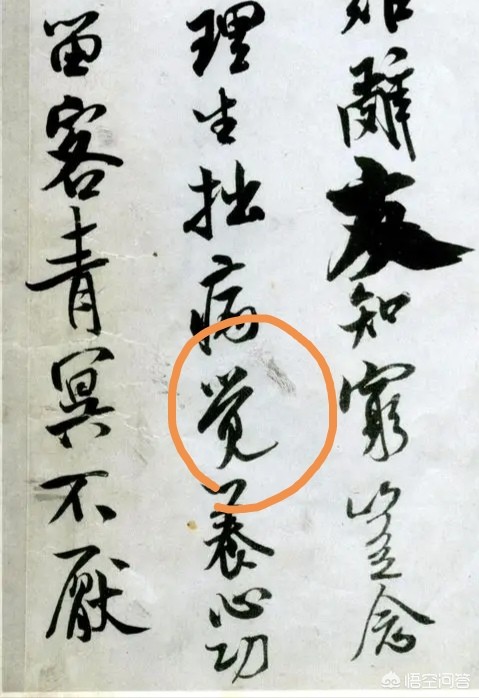 辭友知窮豈念
理生拙病觉養心功
留客青冥不厭
悟空问答